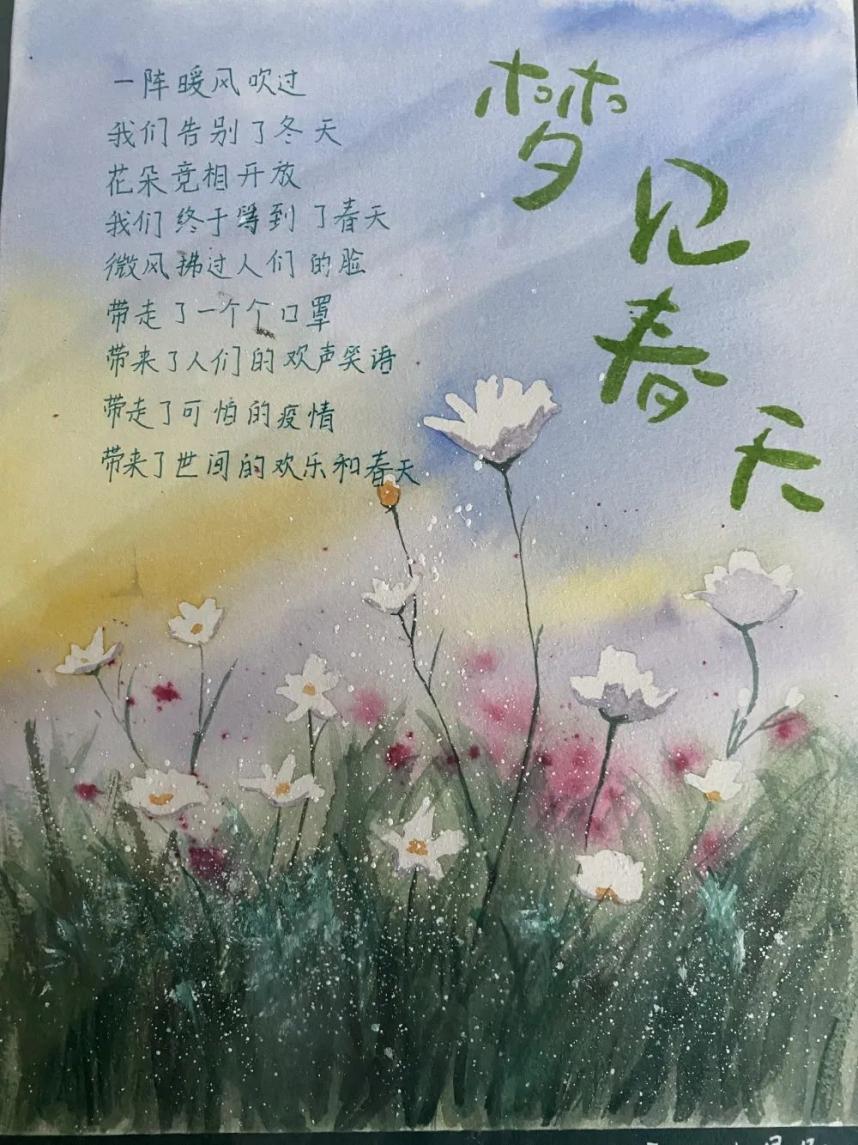 梦见春天
一阵暖风吹过
我们告别了冬天
花朵竞相开放
我们终于等到了春天
微风拂过人们的脸
带走了一个个口罩
带来了人们的欢声笑语
带走了可怕的疫情
带来了世间的欢乐和春天